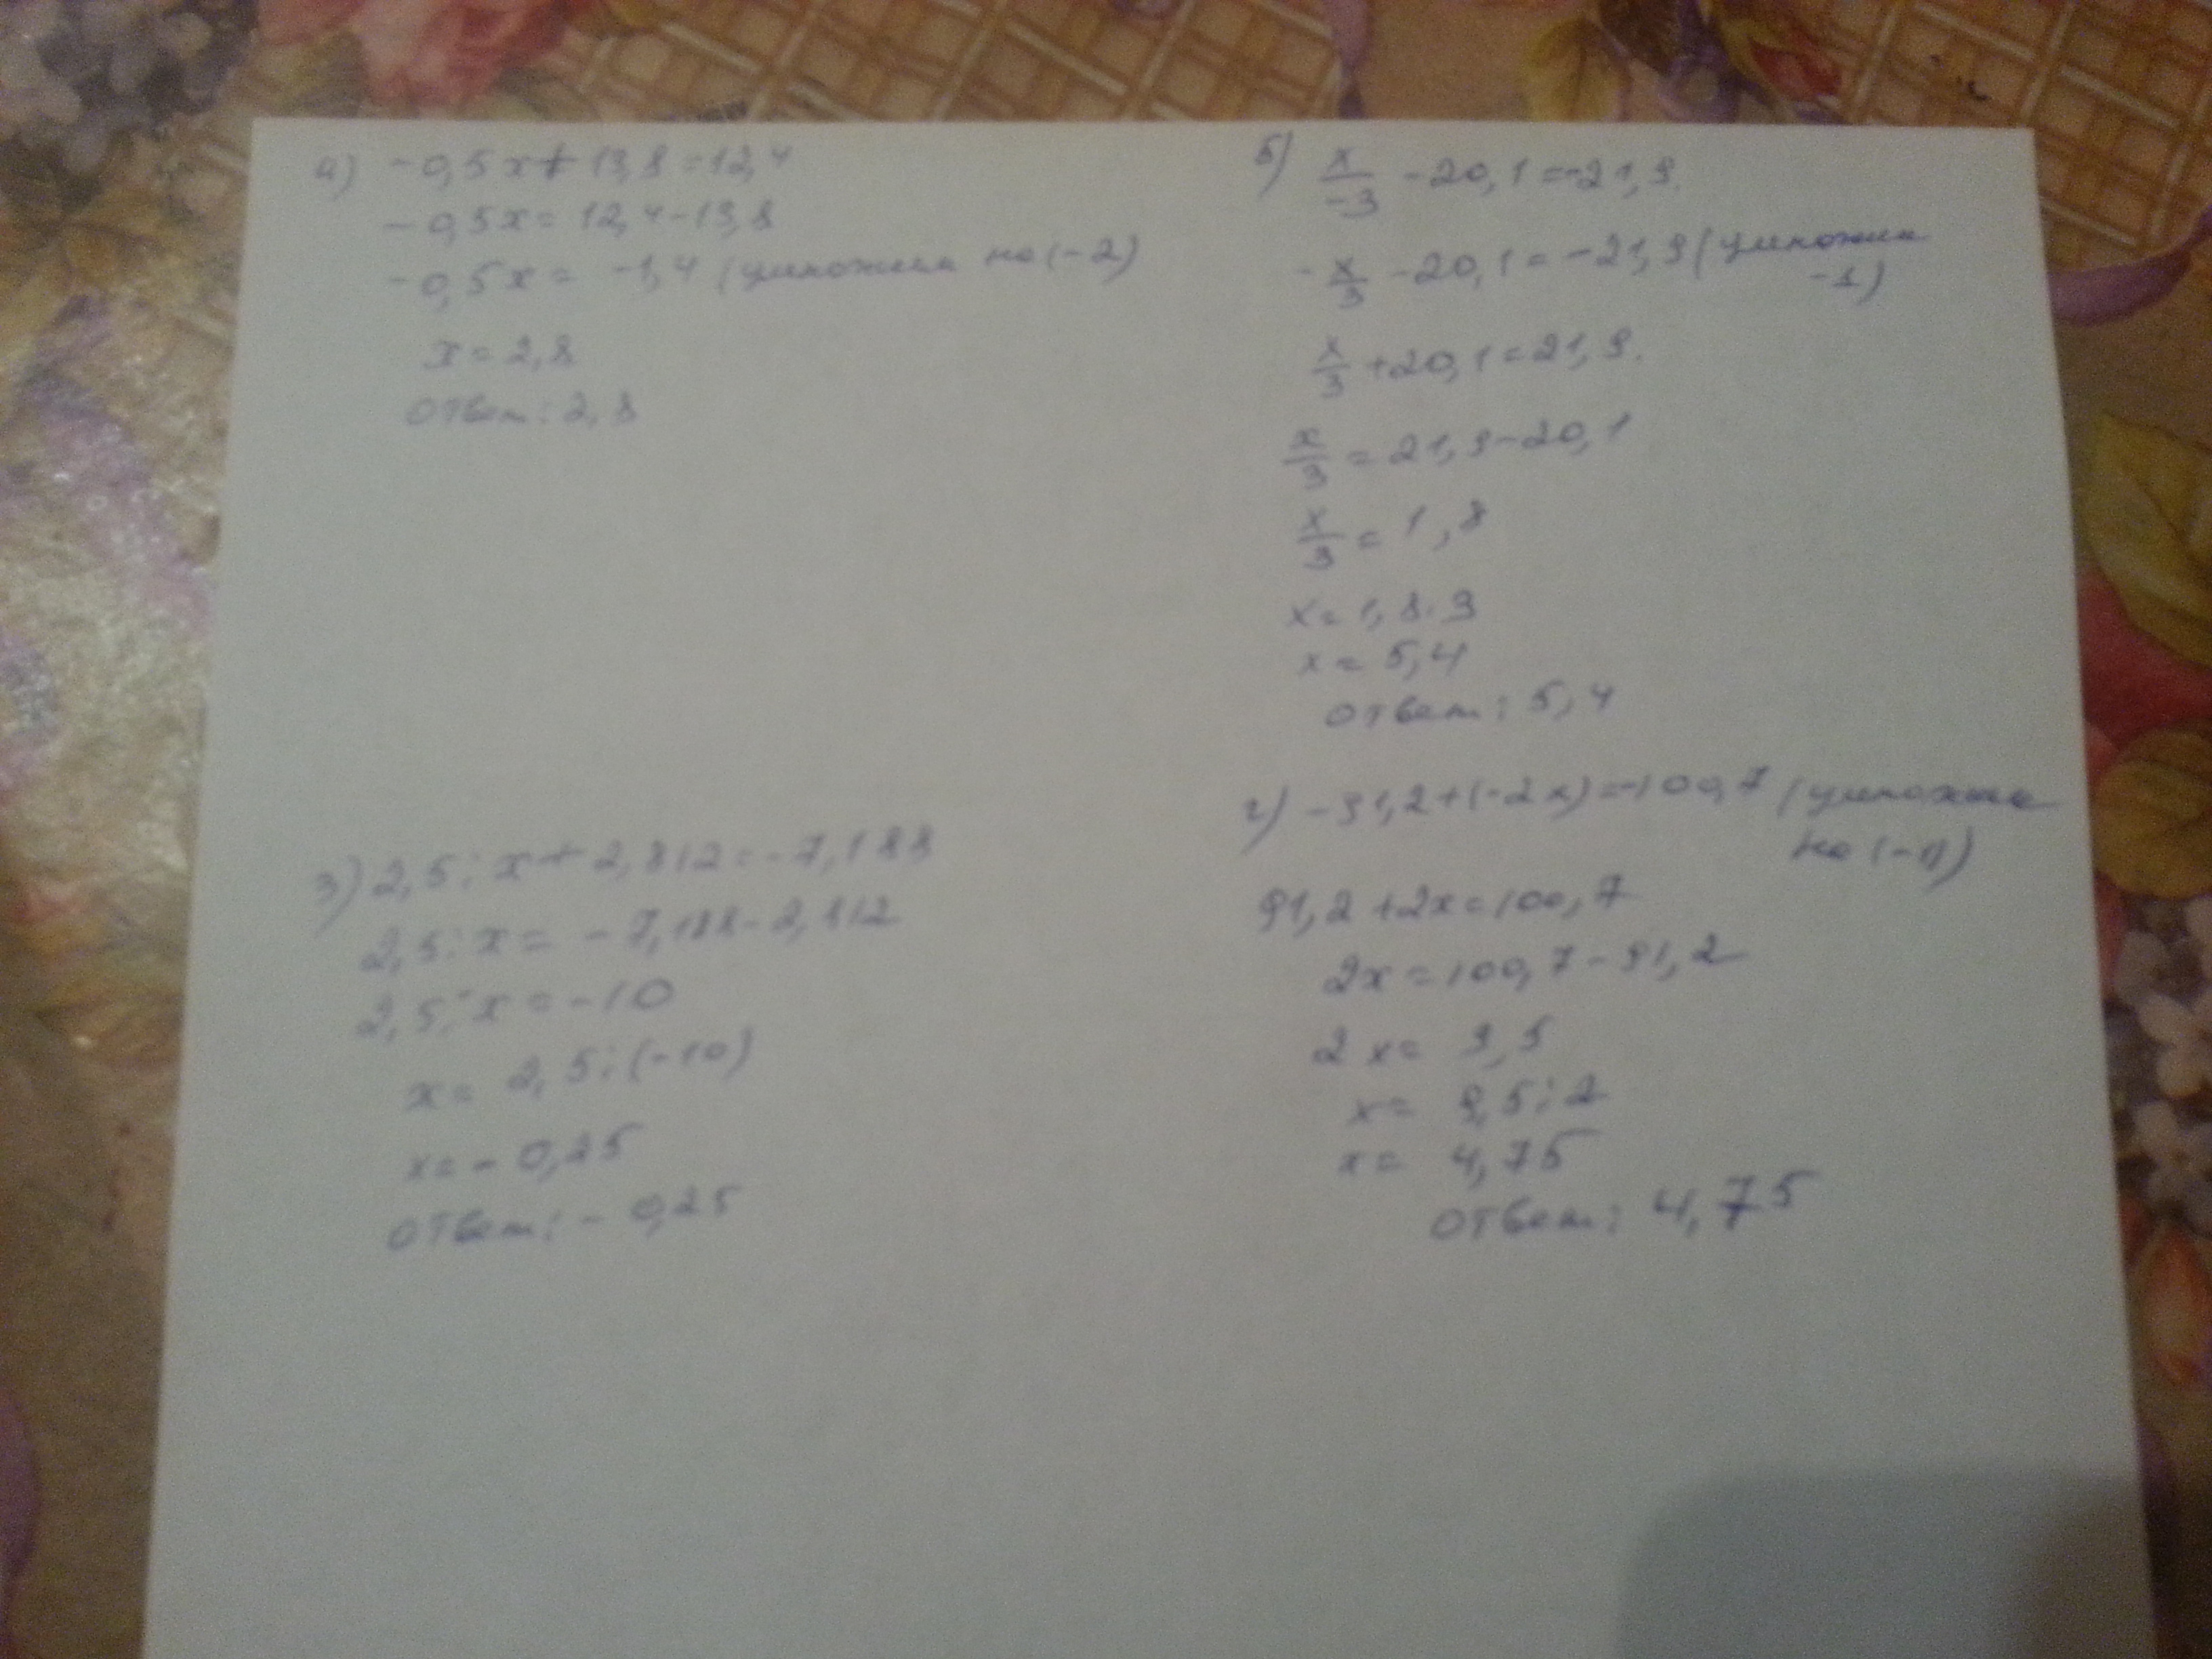 а) -0,5x+13,8=12,4
-0,5x=12,4-13,8
-0,5x= -1,4 (умножим на (-2)
x=2,8
ответ: 2,8
б) x/-3 -20,1=-21,9.
-x/3 -20,1=-21,9 (умножим
-1)
x/3 +20,1=21,9.
x/3 = 21,9-20,1
x/3 = 1,8
x=1,8·3
x=5,4
ответ: 5,4
3) 2,5:x+2,812=-7,188
2,5:x= -7,188-2,812
2,5:x=-10
x= 2,5:(-10)
x=-0,25
ответ: -0,25
г) -91,2+(-2x)=-100,7 (умножим
на (-1))
91,2+2x=100,7
2x=100,7-91,2
2x= 9,5
x= 9,5:2
x= 4,75
ответ: 4,75